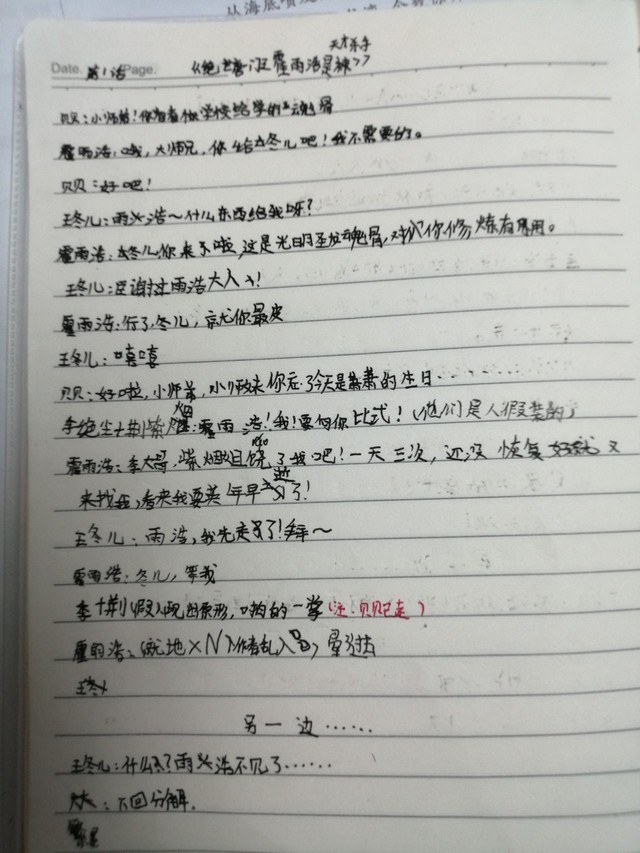 天才杀手
Date. 第1话 Page. 《绝世唐门之霍雨浩是神》
贝贝:小师弟!你看看做学校给学的魂骨
霍雨浩:哦,大师兄,你给冬儿吧!我不需要的。
贝贝:好吧!
王冬儿:雨浩~什么东西给我呀?
霍雨浩:冬儿你来了啦,这是光明圣龙魂骨,对你修炼有用。
王冬儿:谢过雨浩大人!
霍雨浩:行了,冬儿,就你最皮
王冬儿:嘻嘻
贝贝:好啦,小师弟,小师妹你忘了今天是萧萧的生日……
李绝尘+荆紫烟:霍雨浩!我!要向你比式!(他们是人假装的)
霍雨浩:李大哥,紫烟姐饶了我吧!一天三次,还没恢复好就又
来找我,看来我要英年早逝了!
王冬儿:雨浩,我先走了!拜~
霍雨浩:冬儿,等我
李+荆(假)现出原形,啪的一掌(注:贝贝已走)
霍雨浩:(就地×N)(作者乱入),晕过去
王冬
另一边……
王冬儿:什么?雨浩不见了……
下回分解.